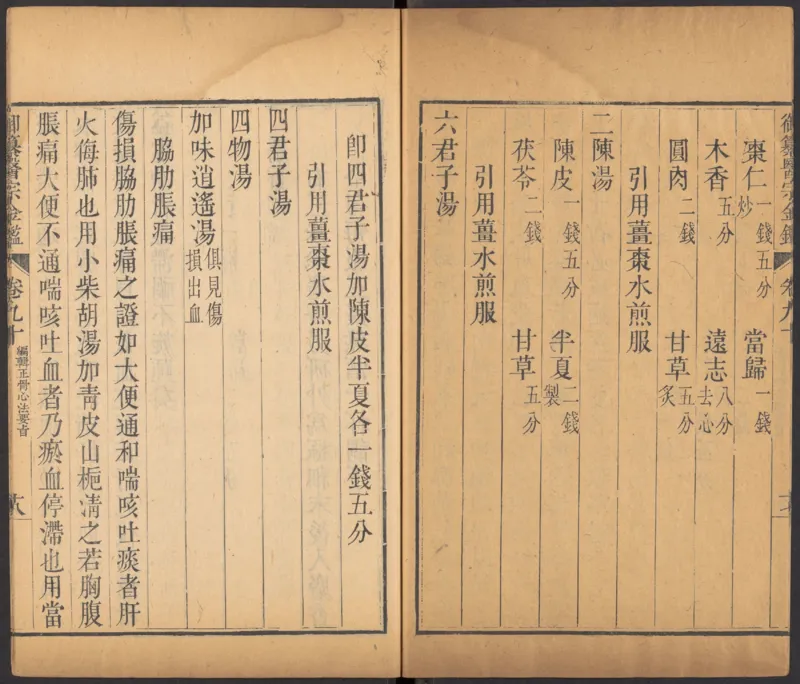 御纂醫宗金鑑
卷九十
棗仁炒一錢五分 當歸一錢
木香五分 遠志去心八分
圓肉二錢 甘草炙五分
引用薑棗水煎服
二陳湯
陳皮一錢五分 半夏製二錢
茯苓二錢 甘草五分
引用薑棗水煎服
六君子湯
即四君子湯加陳皮半夏各一錢五分
引用薑棗水煎服
四君子湯
四物湯
加味逍遙湯俱見傷損出血
脇肋脹痛
傷損脇肋脹痛之證如大便通和喘咳吐痰者肝
火侮肺也用小柴胡湯加青皮山梔淸之若胸腹
脹痛大便不通喘咳吐血者乃瘀血停滯也用當
御纂醫宗金鑑
卷九十
編輯正骨心法要旨